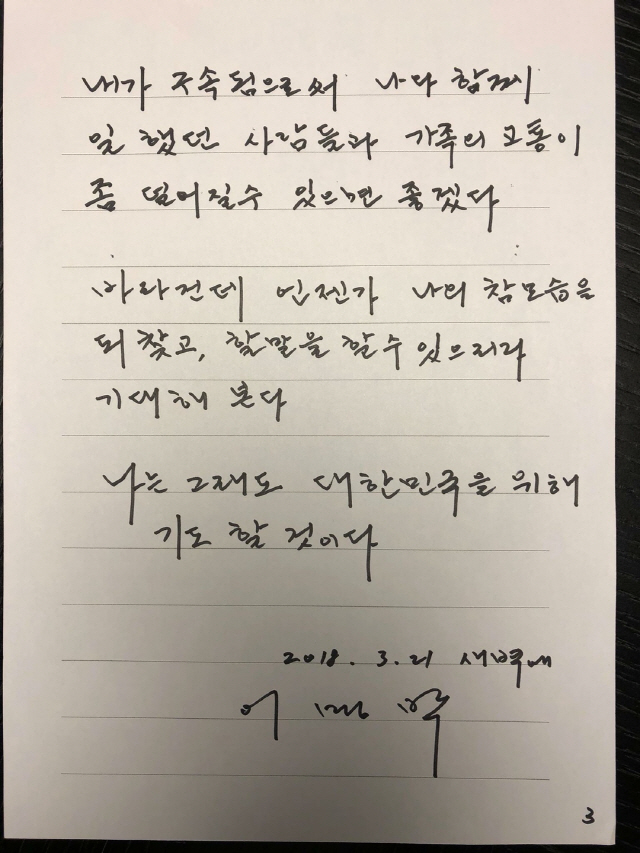 내가 구속됨으로써 나와 함께
일 했던 사람들과 가족의 고통이
좀 덜어질수 있으면 좋겠다
바라건데 언젠가 나의 참모습을
되찾고, 할말을 할 수 있으리라
기대해 본다
나는 그래도 대한민국을 위해
기도 할 것이다
2018. 3. 21 새벽에
이명박
3